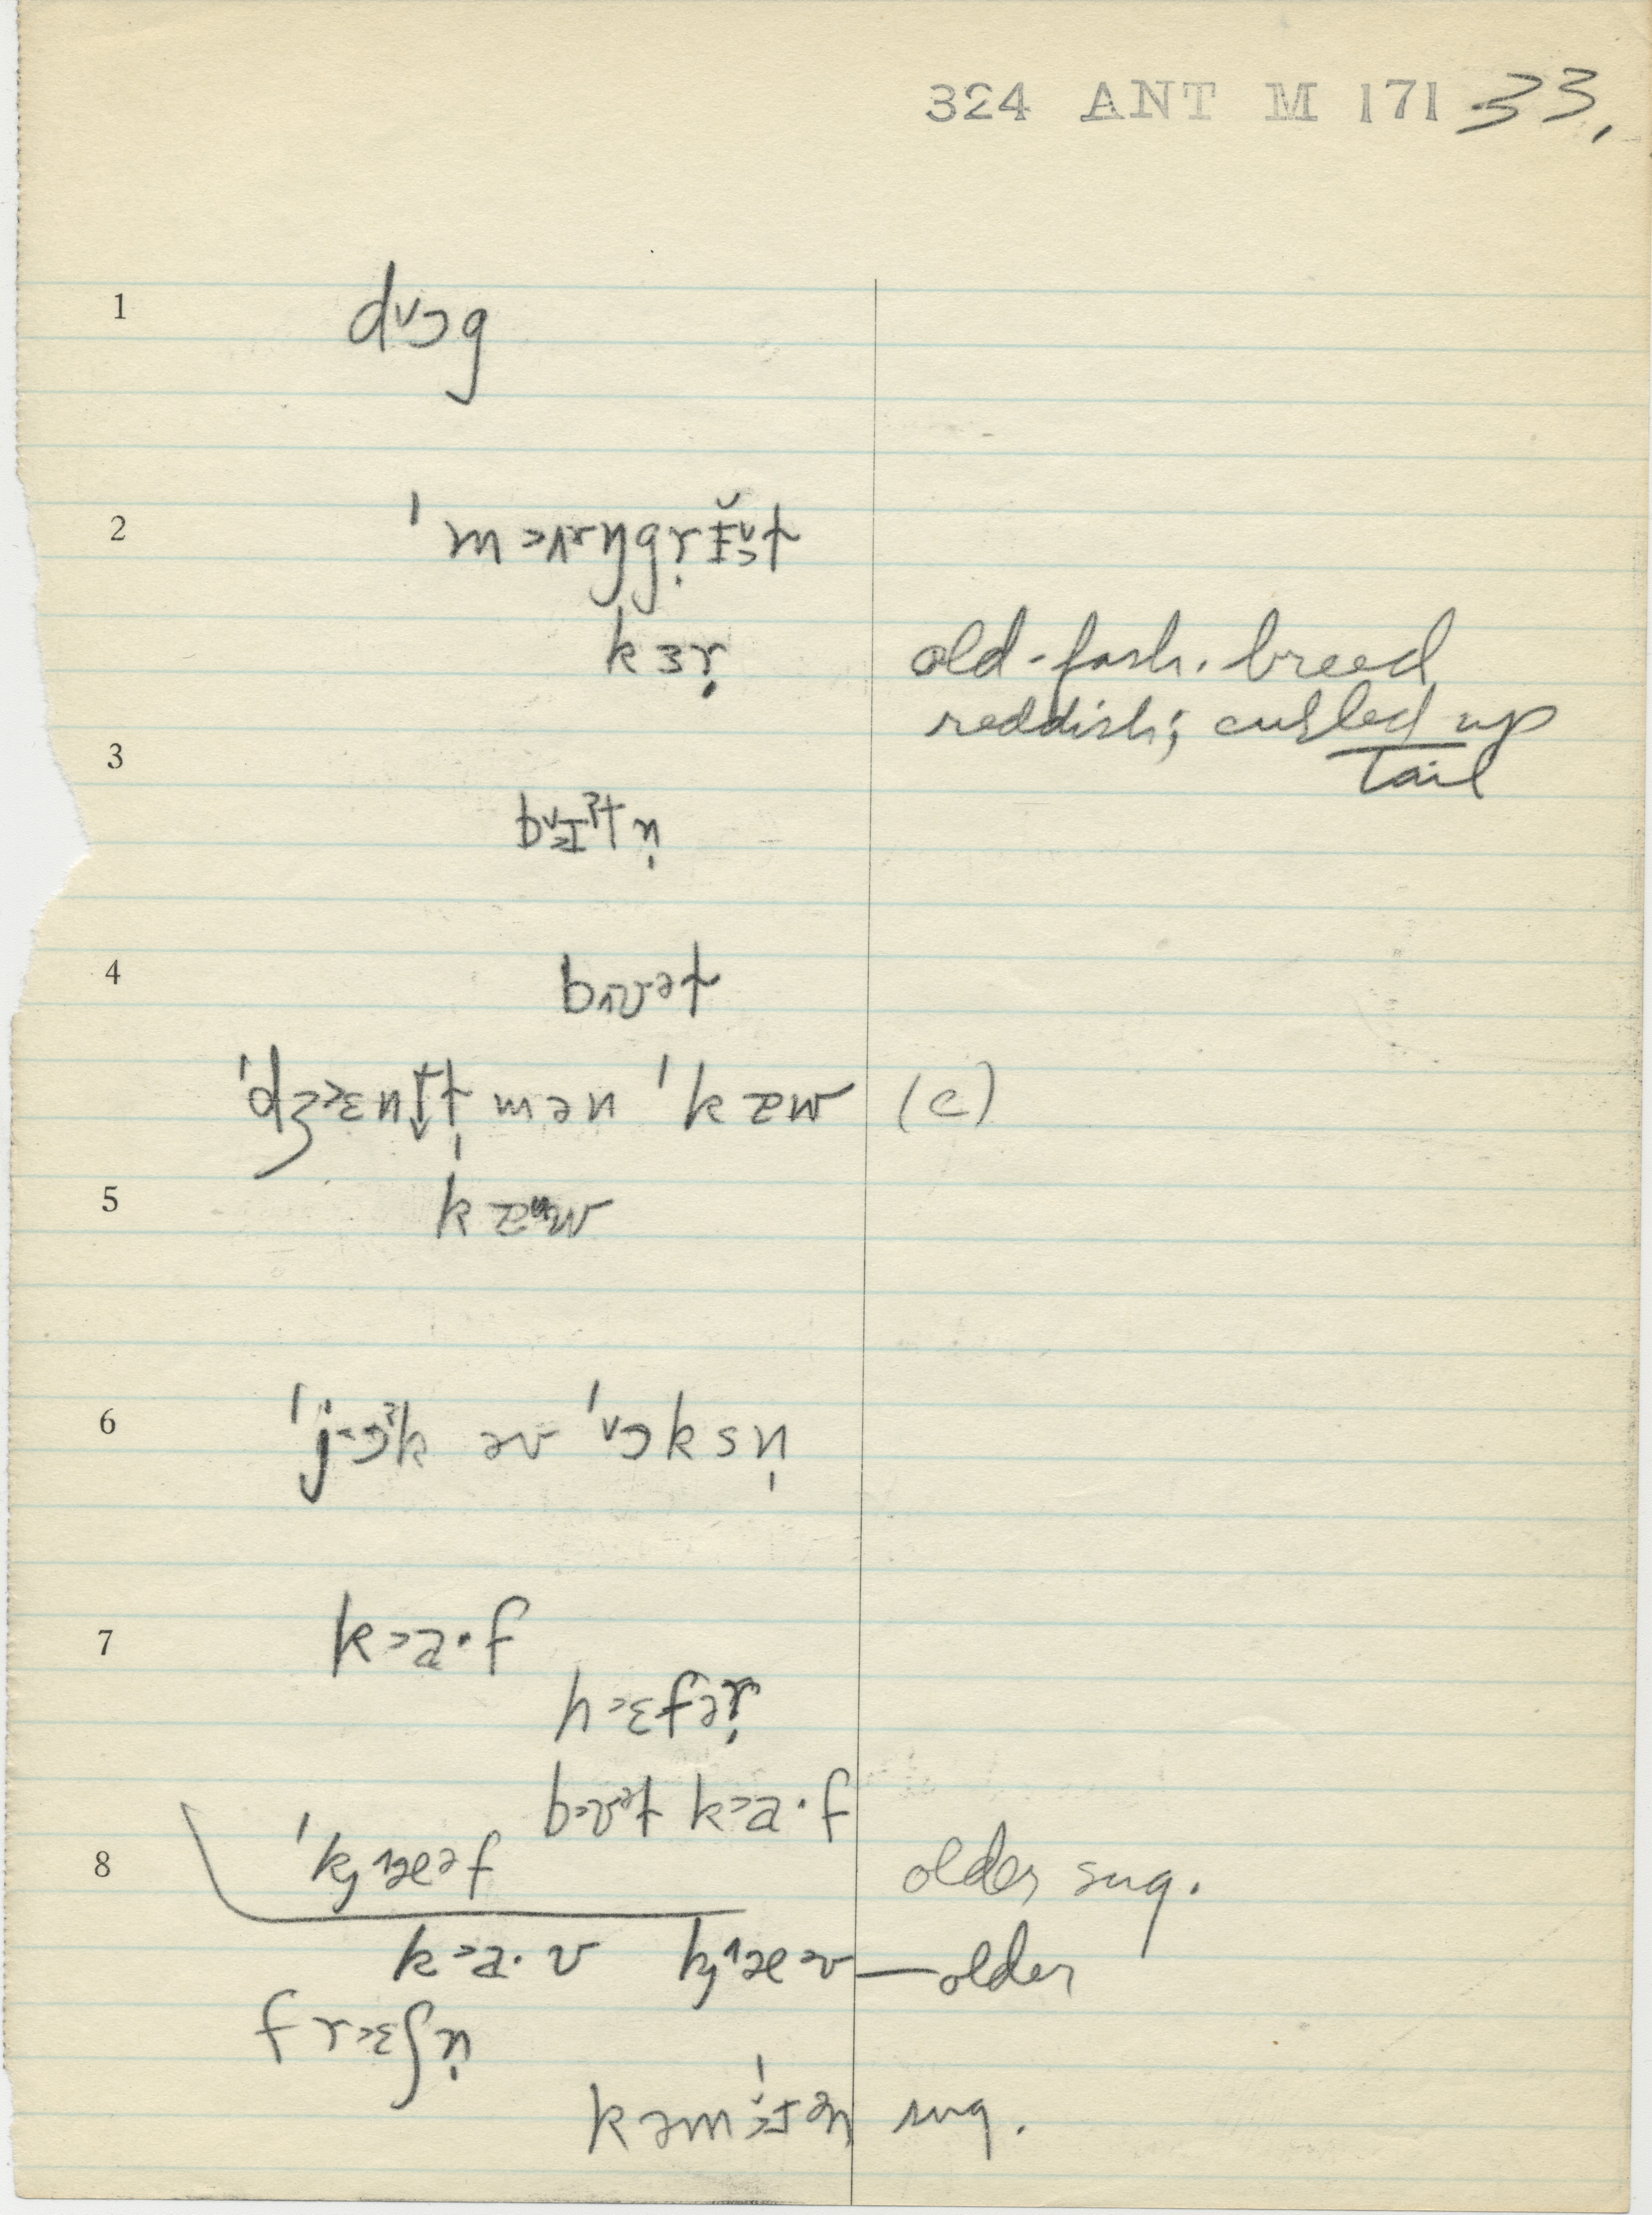 324 ANT M 171 33.
1 dv̌ɔg
2 ˈm˃ʌɪŋgr̩ɪ̆t
kɜr̩ old-fash. breed
reddish; curled up
3 tail
bɪˀtn̩
4 bʊət
ˈdʒ˃ɛnt mən ˈkæw (c)
5 kæᵘw
6 ˈjɔˀk əv ˈɔksn̩
7 k˃a·f
h˃ɛfər̩
bʊət k˃a·f
8 ˈkȷæəf older sug.
k˃a·v kȷæəv — older
fr˃ɛʃn̩
kəmˈɪən sug.